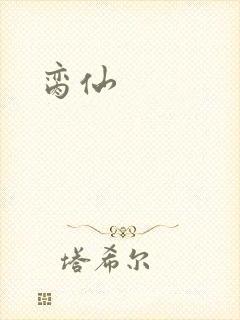 脔仙
塔希尔